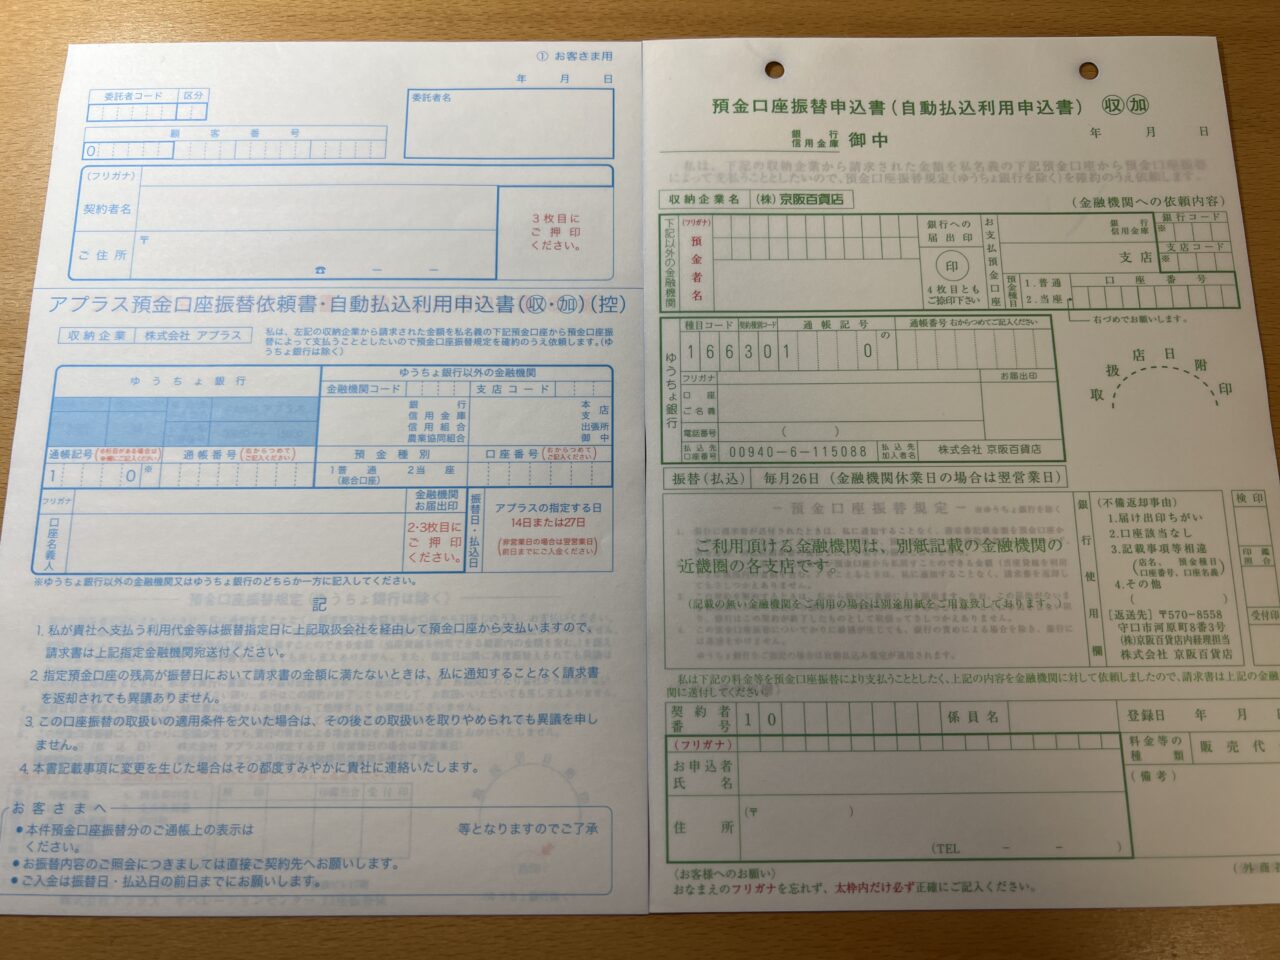 ① お客さま用
年 月 日
委託者コード 区分
委託者名
顧客番号
0
(フリガナ)
契約者名
3枚目に
ご押印
ください。
ご住所
〒
☎ － －
アプラス預金口座振替依頼書・自動払込利用申込書(収・加)(控)
収納企業 株式会社 アプラス
私は、左記の収納企業から請求された金額を私名義の下記預金口座から預金口座振
替によって支払うこととしたいので預金口座振替規定を確約のうえ依頼します。(ゆ
うちょ銀行は除く)
ゆうちょ銀行
ゆうちょ銀行以外の金融機関
金融機関コード 支店コード
銀行
信用金庫
信用組合
農業協同組合
本
支 店
出張所
御中
通帳記号
通帳番号 (右からつめてご記入ください)
預金種別
口座番号 (右からつめてご記入ください)
1 0 ※
1普通 2当座
(総合口座)
フリガナ
口座名義人
金融機関
お届出印
2・3枚目に
ご押印
ください。
振替日・払込日
アプラスの指定する日
14日または27日
(非営業日の場合は翌営業日)
(前日までにご入金ください)
※ゆうちょ銀行以外の金融機関又はゆうちょ銀行のどちらか一方に記入してください。
記
1. 私が貴社へ支払う利用代金等は振替指定日に上記取扱会社を経由して預金口座から支払いますので、
請求書は上記指定金融機関宛送付ください。
2. 指定預金口座の残高が振替日において請求書の金額に満たないときは、私に通知することなく請求書
を返却されても異議ありません。
3. この口座振替の取扱いの適用条件を欠いた場合は、その後この取扱いを取りやめられても異議を申し
ません。
4. 本書記載事項に変更を生じた場合はその都度すみやかに貴社に連絡いたします。
お客さまへ
●本件預金口座振替分のご通帳上の表示は 等となりますのでご了承
ください。
●お振替内容のご照会につきましては直接ご契約先へお願いします。
●ご入金は振替日・払込日の前日までにお願いします。
預金口座振替申込書(自動払込利用申込書) 収 加
銀行
信用金庫 御中
年 月 日
私は、下記の収納企業から請求された金額を私名義の下記預金口座から預金口座振替
によって支払うこととしたいので、預金口座振替規定(ゆうちょ銀行を除く)を確約のうえ依頼します。
収納企業名 (株)京阪百貨店
(金融機関への依頼内容)
下記以外の金融機関
(フリガナ)
預金者名
銀行への
届出印
印
4枚目とも
ご捺印下さい
お支払預金口座
銀行
信用金庫
支店
銀行コード
※
支店コード
※
預金種目
1.普通
2.当座
口座番号
右づめでお願いします。
ゆうちょ銀行
種目コード 契約種別コード 通帳記号 通帳番号 右からつめてご記入ください
166301 0 の
フリガナ
口座
ご名義
お届出印
電話番号
( )
払込先
口座番号
00940-6-115088
払込先
加入者名
株式会社 京阪百貨店
取扱店日附印
振替(払込) 毎月26日(金融機関休業日の場合は翌営業日)
－預金口座振替規定－
ご利用頂ける金融機関は、別紙記載の金融機関の
近畿圏の各支店です。
(記載の無い金融機関をご利用の場合は別途用紙をご用意致しております。)
銀行使用欄
(不備返却事由)
1.届け出印ちがい
2.口座該当なし
3.記載事項等相違
(店名、預金種目
口座番号、口座名義)
4.その他
( )
[返送先] 〒570-8558
守口市河原町8番3号
(株)京阪百貨店内経理担当
株式会社 京阪百貨店
検印
印鑑
照合
受付印
私は下記の料金等を預金口座振替により支払うこととしたく、上記の内容を金融機関に対して依頼しましたので、請求書は上記の金融
関に送付してください
契約者
番号
10
係員名
登録日 年 月
(フリガナ)
お申込者
氏名
料金等の
種類
販売代
(備考)
住所
(〒 )
(TEL － － )
(お客様へのお願い)
おなまえのフリガナを忘れず、太枠内だけ必ず正確にご記入ください。
(外商